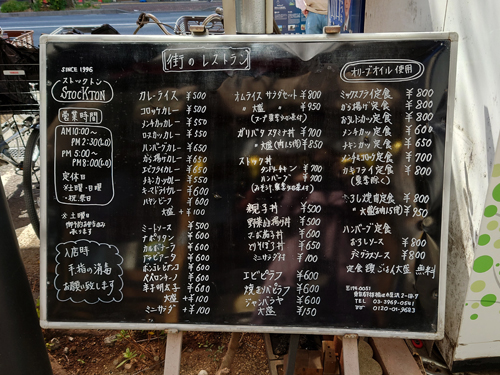 街のレストラン
SINCE 1996
ストックトン
STOCKTON
営業時間
AM10:00～
PM2:30(L.O)
PM5:00～
PM8:00(L.O)
定休日
※土曜日・日曜
・祝祭日
※土曜日
入店時
手指の消毒
お願い致します
カレーライス ¥500
コロッケカレー ¥500
メンチカツカレー ¥550
ロースカツカレー ¥550
ハンバーグカレー ¥650
から揚カレー ¥650
エビフライカレー ¥650
チキンカツカレー ¥550
キーマドライカレー ¥600
ハヤシビーフ ¥600
大盛 +¥100
ミートソース ¥500
ナポリタン ¥600
カルボナーラ ¥600
アラビアータ ¥600
ボンゴレビアンコ ¥600
ペペロンチーノ ¥600
辛子明太子 ¥600
大盛 +¥100
ミニサラダ +¥100
オムライス サラダセット ¥800
〃 大盛 〃 ¥950
ガリバタスタミナ丼 ¥700
〃 大盛(肉1.5倍) ¥850
ストック丼
タンドリーチキン ¥700
ハンバーグ ¥900
親子丼 ¥500
野菜から揚げ丼 ¥500
マーボ茄子丼 ¥650
とりそぼろ丼 ¥650
ミニサラダ ¥100
エビピラフ ¥600
焼肉ピラフ ¥600
ジャンバラヤ ¥600
大盛 ¥150
オリーブオイル使用
ミックスフライ定食 ¥800
から揚げ定食 ¥800
おろしカツ定食 ¥800
メンチカツ定食 ¥600
チキンカツ定食 ¥650
メンチ&コロッケ定食 ¥700
カキフライ定食 ¥800
ぶろし焼肉定食 ¥800
〃 大盛(肉1.5倍) ¥950
ハンバーグ定食
おろしソース ¥800
デミグラスソース ¥800
定食類ごはん大盛 無料
〒174-0051
TEL 03-3969-0541
0120-01-9683